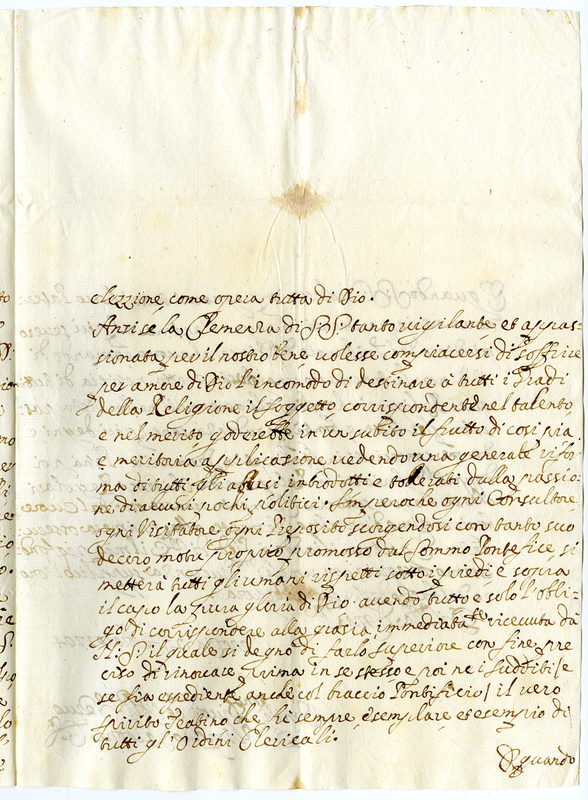 elezzione come opera tutta di Dio.
Anzi se la Clemenza di S. S. tanto vigilante et appas-
sionata per il nostro bene volesse compiacersi di soffrire
per amore di Dio l'incomodo di destinare à tutti i Gradi
della Religione il soggetto corrispondente nel talento,
e nel merito goderebbe in un subito il frutto di così pia
e meritoria applicazione vedendo una generale rifor-
ma di tutti gli abusi introdotti e tollerati dalla passio-
ne di alcuni pochi politici. Imperoche ogni Consultore
ogni Visitatore ogni Preposito scorgendosi con tanto suo
decoro motu proprio promosso dal Sommo Pontefice si
metterà tutti gli umani rispetti sotto i piedi e sopra
il capo la pura gloria di Dio. avendo tutto e solo l'obli-
go di corrispondere alla grazia immediatate ricevuta da
N. S. il quale si degnò di farlo superiore con fine pre
ciso di rinovare prima in se stesso e poi ne i sudditi (e
se sia espediente anche col braccio Pontificio) il vero
spirito Teatino che fù sempre esemplare et esempio di
tutti gl'Ordini Clericali.
E quando